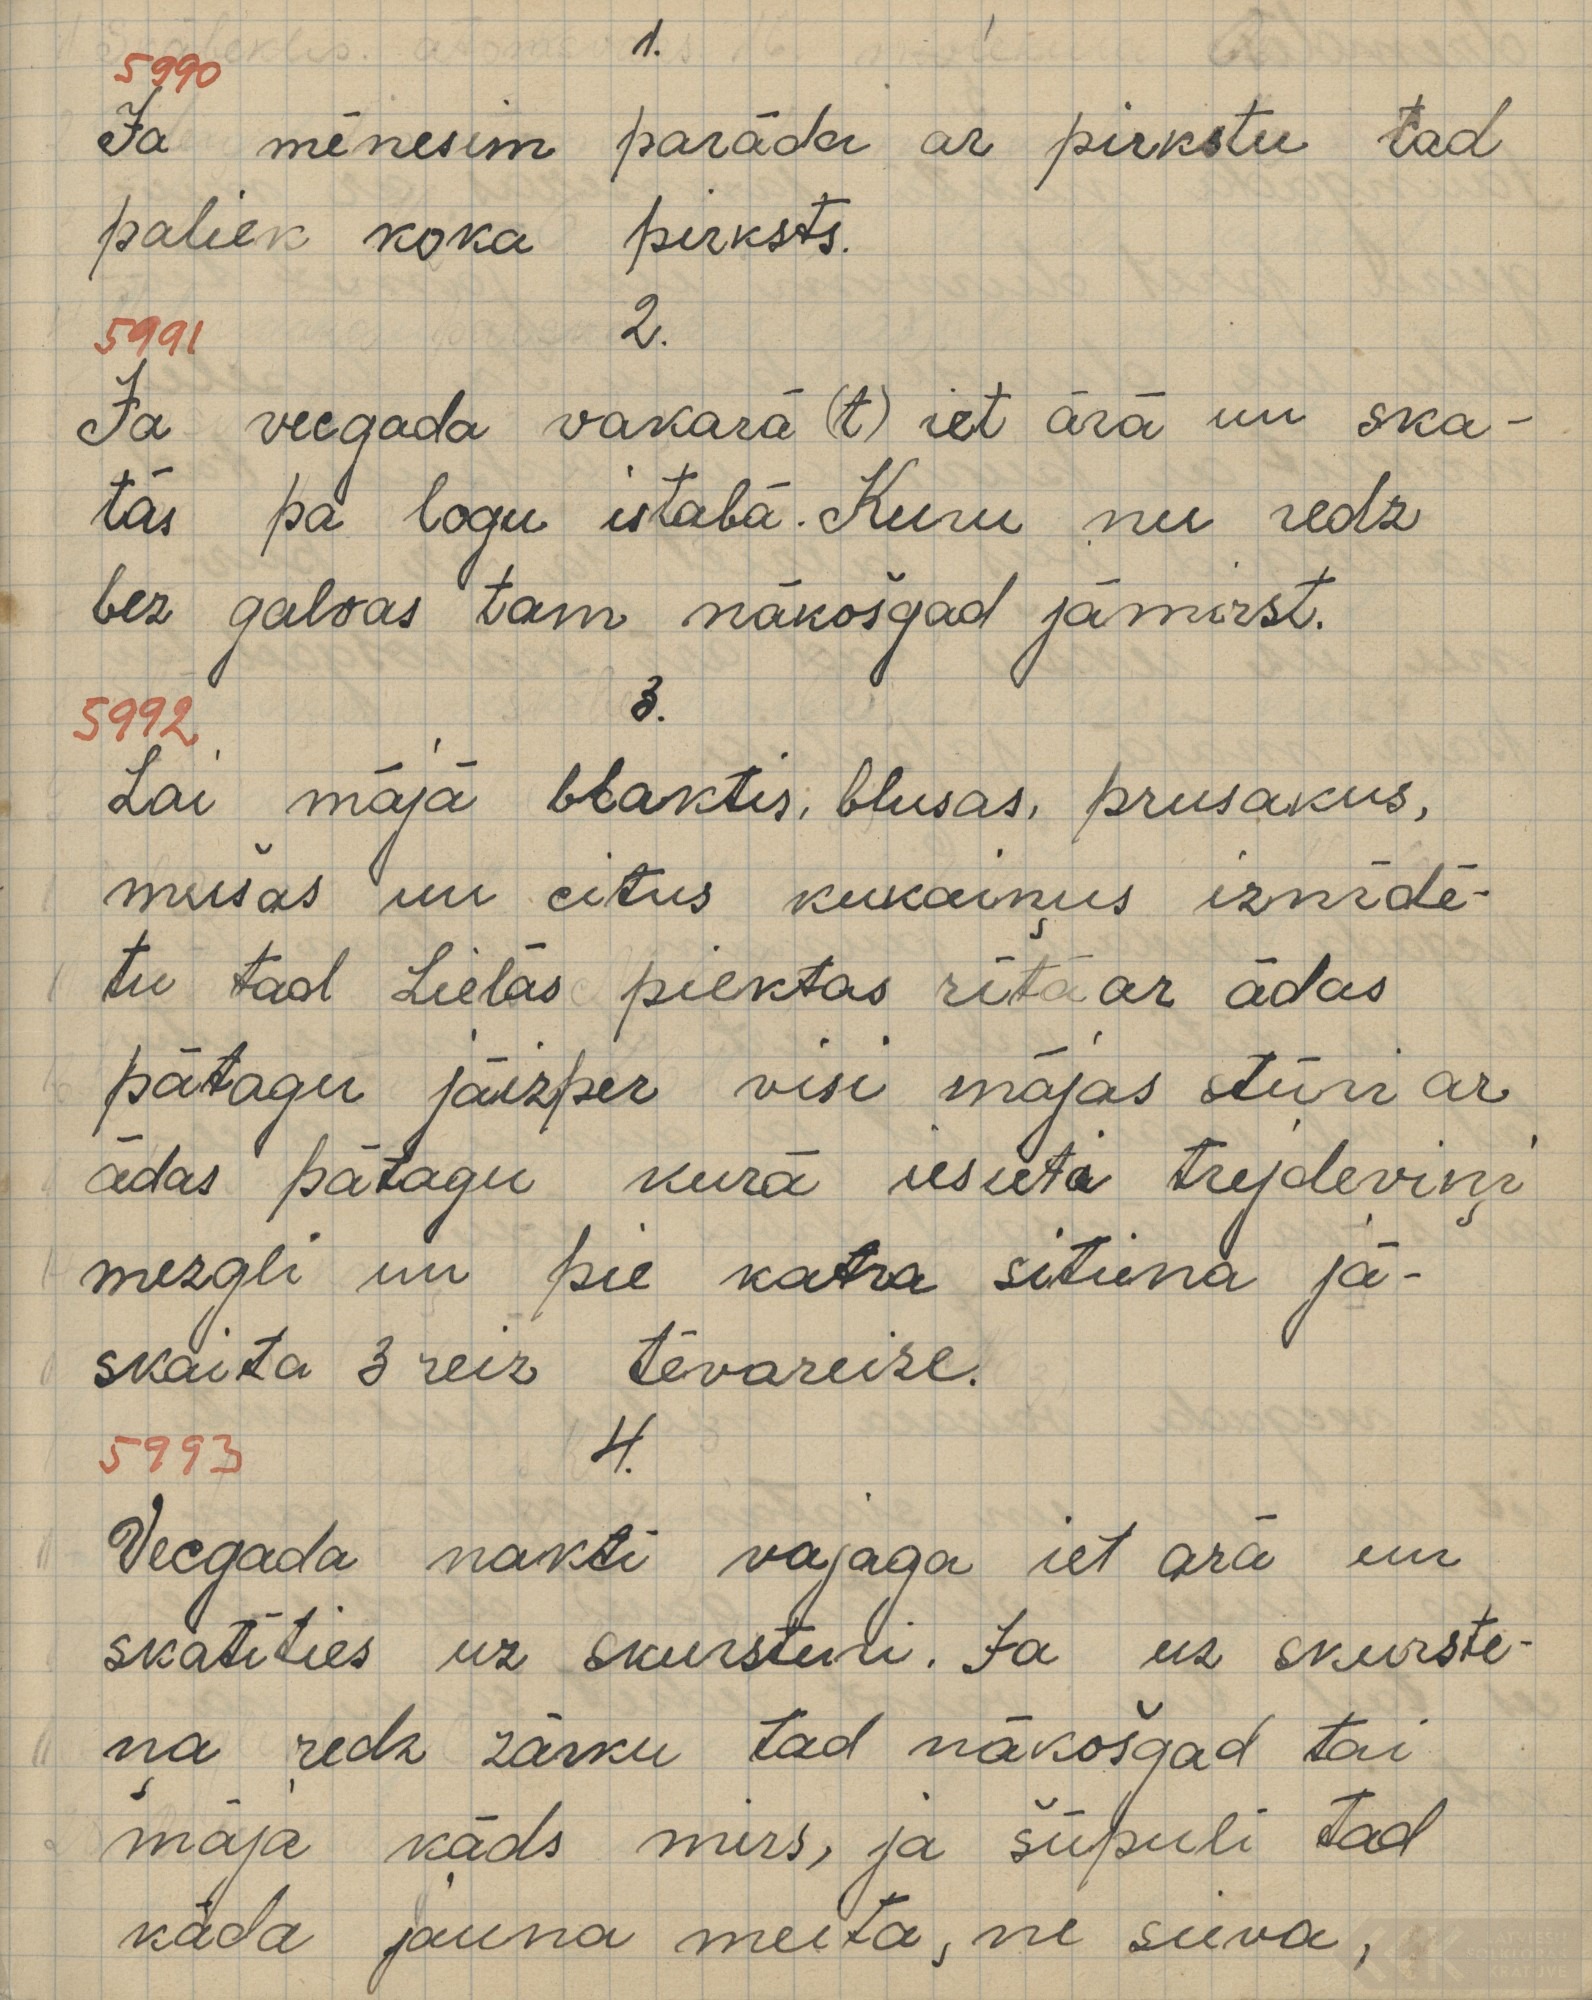 1.
5990
Ja mēnesim parāda ar pirkstu tad
paliek koka pirksts.
5991 2.
Ja vecgada vakarā (t) iet ārā un ska-
tās pa logu istabā. Kuru nu redz
bez galvas tam nākošgad jāmirst.
5992 3.
Lai mājā blaktis, blusas, prusakus,
mušas un citus kukaiņus iznīdē-
tu tad Lielās piektas rītā ar ādas
pātagu jāizper visi mājas stūri ar
ādas pātagu kurā iesieti trejdeviņi
mezgli un pie katra sitiena jā-
skaita 3 reiz tēvareize.
5993 4.
Vecgada naktī vajaga iet arā un
skatīties uz skursteni. Ja uz skurste-
ņa redz zārku tad nākošgad tai
mājā kāds mirs, ja šūpuli tad
kāda jauna meita, ne sieva,